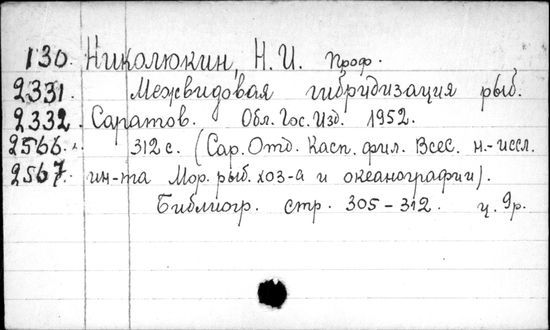 130. Николюкин, Н. И. проф.
2331. Межвидовая гибридизация рыб.
2332. Саратов. Обл. Гос. Изд. 1952.
2566. 312 с. (Сар. Отд. Касп. фил. Всес. н.-иссл.
2567. ин-та Мор. рыб. хоз-а и океанографии).
Библиогр. стр. 305-312. ц. 9р.